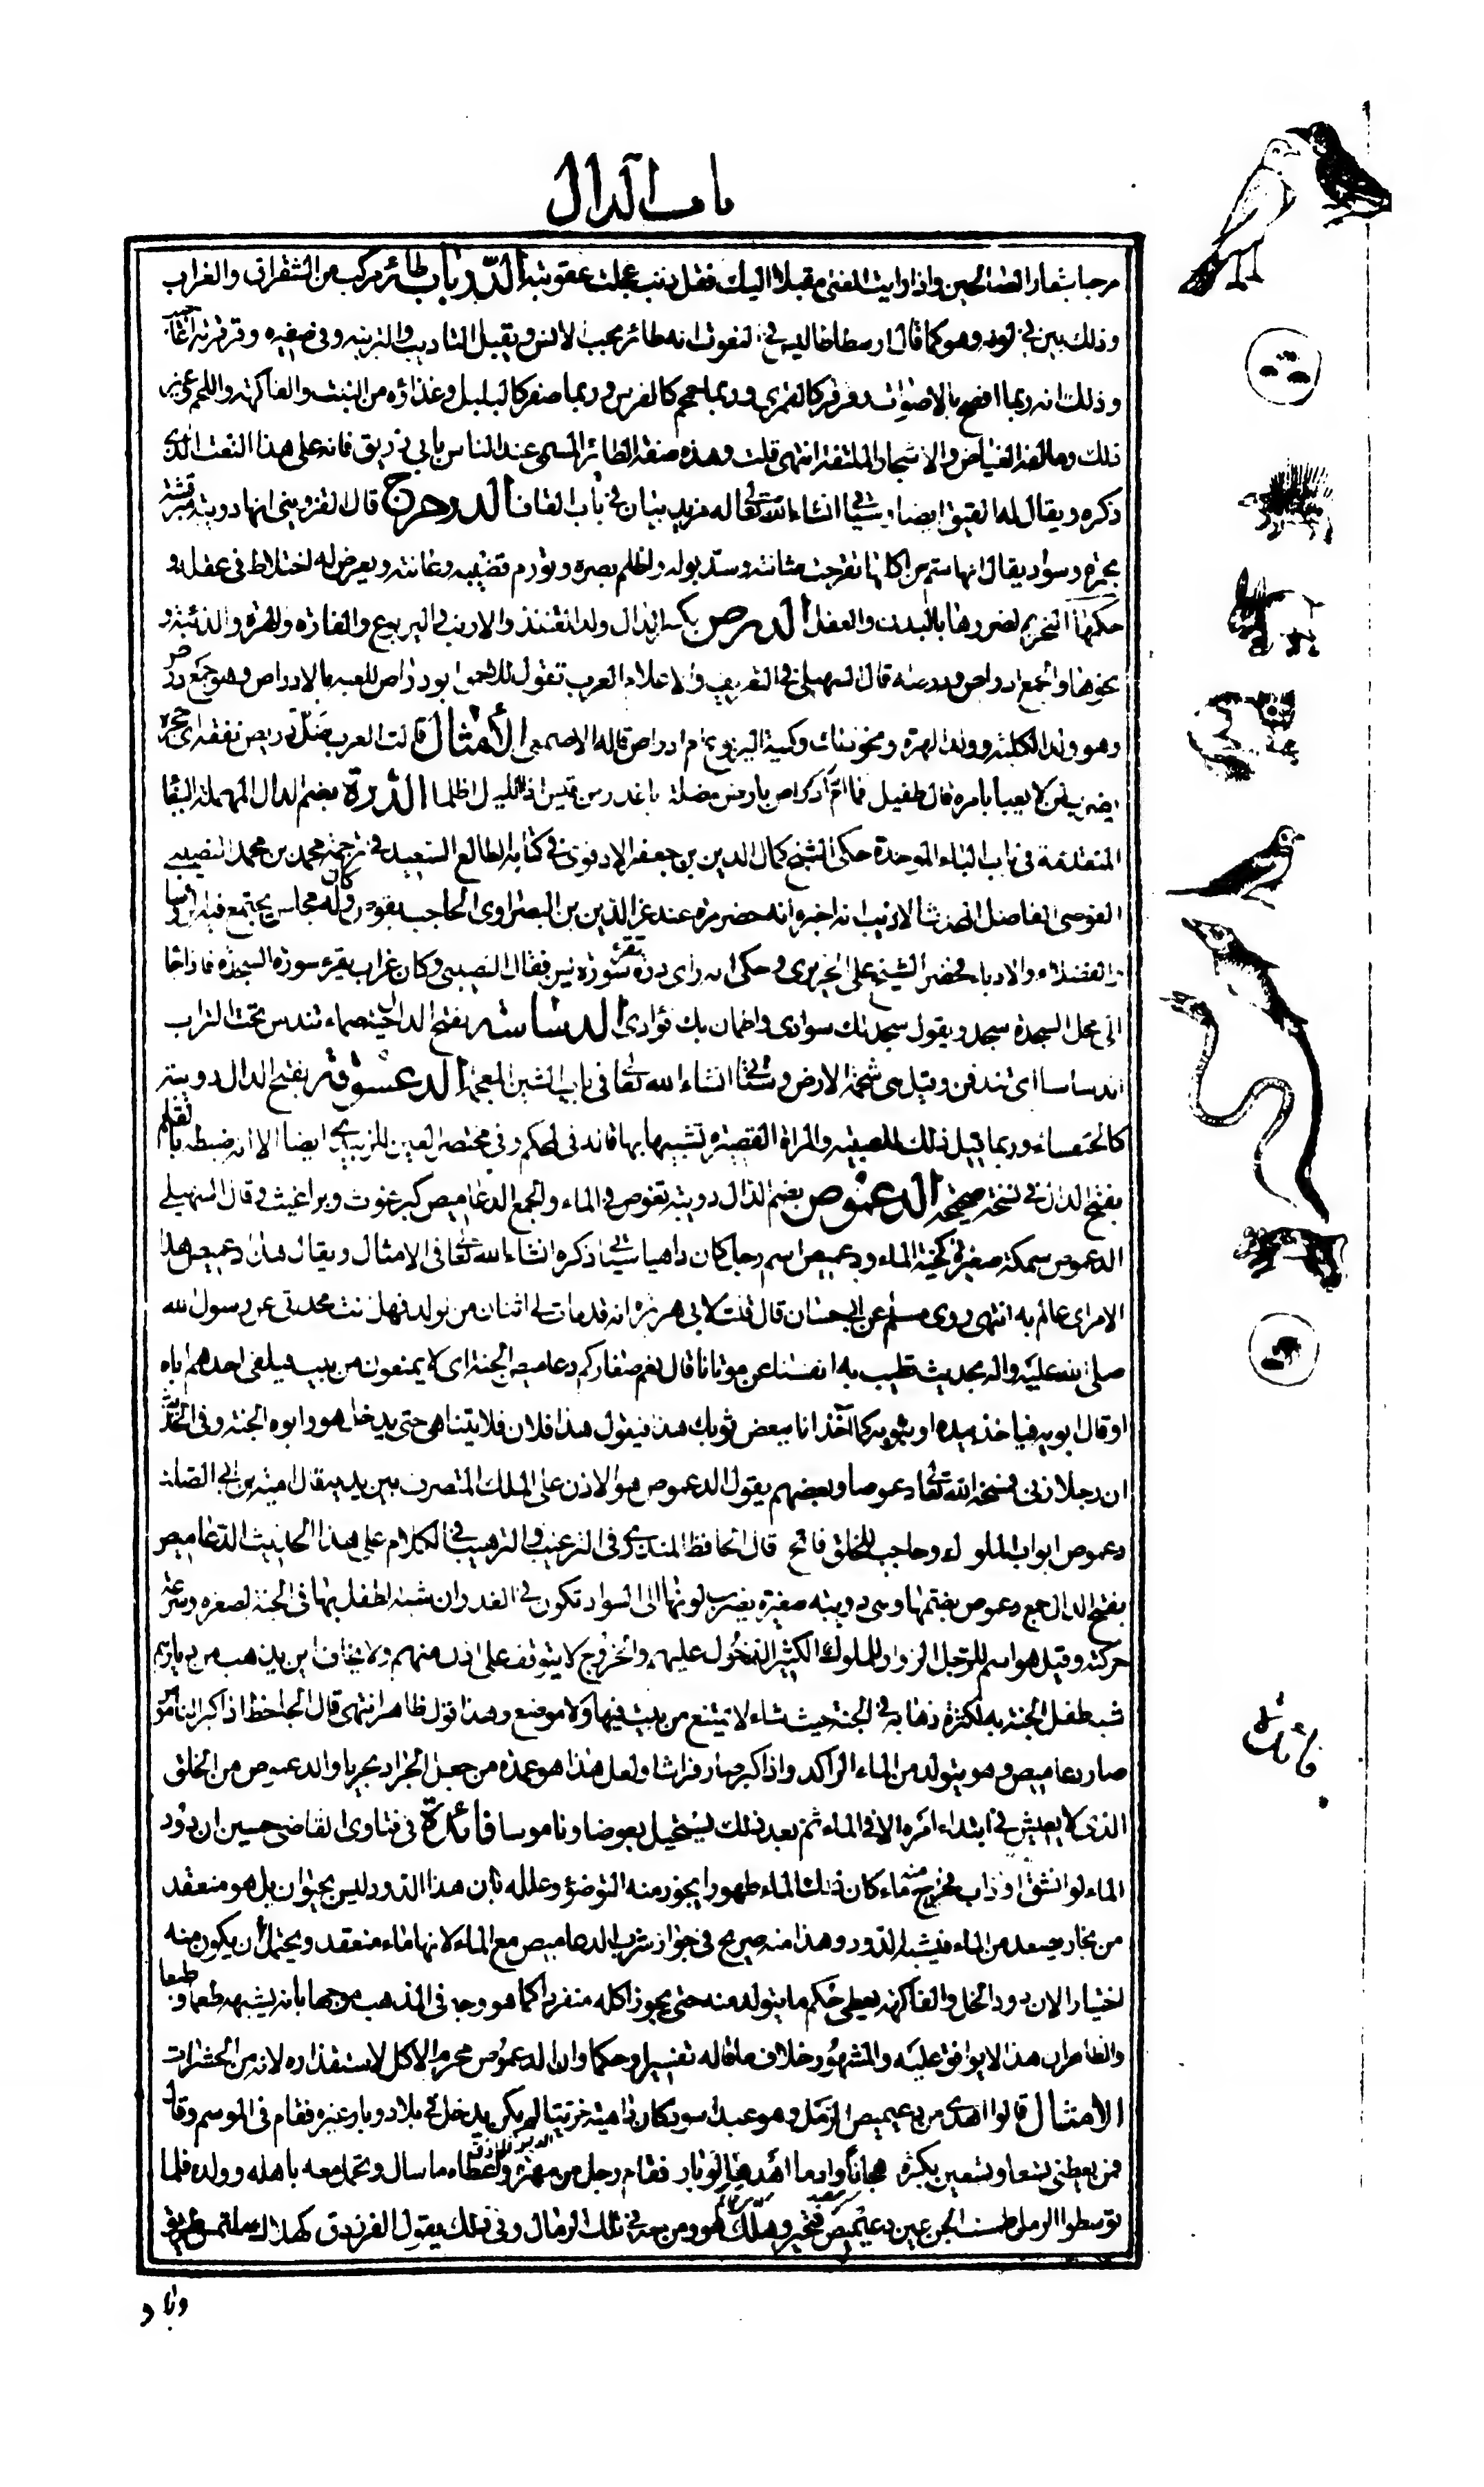 باب الدال
مرحبا بشعار الصالحين واذا رايت الغنى مقبلا اليك فقل ذنب عجلت عقوبته الدباب طائر مركب من الشقراق والغراب
وذلك بين في لونه وهو كما قال ارسطاطاليس في النعوت انه طائر يحب الانس ويقبل التاديب والتربية وفي صفيره وقرقرته اعاجيب
وذلك انه ربما افصح بالاصوات وقرقر كالقمري وربما حمحم كالفرس وربما صفر كالبلبل وغذاؤه من النبت والفاكهة واللحم وغير
ذلك ومالفه الغياض والاشجار الملتفة انتهى قلت وهذه صفة الطائر المسمى عند الناس بابي زريق فانه على هذا النعت الذي
ذكره ويقال له القيق ايضا وسياتي انشاء الله تعالى له مزيد بيان في باب القاف الدرحرج قال القزويني انها دويبة مبرقشة
بحمرة وسواد يقال انها سم من اكلها تقرحت مثانته وسد بوله واظلم بصره وتورم قضيبه وعانته ويعرض له اختلاط في عقله و
حكمها التحريم لضررها بالبدن والعقل الدرص بكسر الدال ولد القنفذ والارنب واليربوع والفارة والهرة والذئبة و
نحوها والجمع ادراص ودرصة قال السهيلي في التعريف والاعلام العرب تقول للاحمق ابو دراص للعبه بالادراص وهو جمع درص
وهو ولد الكلبة وولد الهرة ونحو ذلك وكنية اليربوع ام ادراص قاله الاصمعي الأمثال قالت العرب ضل دريص نفقه اى جحره
يضرب لمن لا يعبأ بامره قال طفيل فما ام ادراص بارض مضلة باغدر من قيس اذا الليل اظلما الدرة بضم الدال المهملة الببغا
المتقدمة في باب الباء الموحدة حكى الشيخ كمال الدين بن جعفر الادفوى في كتابه الطالع السعيد في ترجمة محمد بن محمد النصيبي
القوصي الفاضل المحدث الاديب انه اخبره انه حضر مرة عند عز الدين بن البصراوى الحاجب بقوص وكان له مجلس يجتمع فيه الرؤسا
والفضلاء والادباء فحضر الشيخ على الحريرى وحكى انه راى درة تقرء سورة يس فقال النصيبي وكان غراب يقرء سورة السجدة فاذا جا
الى محل السجدة سجد ويقول سجد لك سوادى واطمان بك فؤادى الدساسة بفتح الدال حية صماء تندس تحت التراب
اندساسا اى تندفن وقيل هى شحمة الارض وستأتي انشاء الله تعالى في باب الشين المعجمة الدعشوقة بفتح الدال دويبة
كالخنفساء وربما قيل ذلك للصبية والمراة القصيرة تشبيها بها قاله في المحكم وفي مختصر العين للزبيدي ايضا الا انه ضبطه بالقلم
بفتح الدال في نسخة صحيحة الدعموص بضم الدال دويبة تغوص في الماء والجمع الدعاميص كبرغوث وبراغيث قال السهيلي
الدعموص سمكة صغيرة كحية الماء ودعيميص اسم رجل كان داهيا سياتي ذكره انشاء الله تعالى في الامثال ويقال هذا دعيميص هذا
الامر اى عالم به انتهى روى مسلم عن ابي حسان قال قلت لابي هريرة انه قد مات لي اثنان من الولد فهل انت محدثي عن رسول الله
صلى الله عليه واله بحديث تطيب به انفسنا عن موتانا قال نعم صغاركم دعاميص الجنة اى لا يمنعون من بيت فيلقى احدهم اباه
او قال ابويه فياخذ بيده او بثوبه كما آخذ انا ببعض ثوبك هذا فيقول هذا فلان فلا يتناهى حتى يدخل هو وابوه الجنة وفي الحديث
ان رجلا زنى فمسخه الله تعالى دعموصا وبعضهم يقول الدعموص هو الاذن على الملك المتصرف بين يديه قال امية بن ابي الصلت
دعموص ابواب الملوك وحاجب للخلق فاتح قال الحافظ المنذرى في الترغيب والترهيب في الكلام على هذا الحديث الدعاميص
بفتح الدال جمع دعموص بضمها وهى دويبة صغيرة يضرب لونها الى السواد تكون في الغدران شبه الطفل بها في الجنة لصغره وسرعة
حركته وقيل هو اسم للرجل الزوار للملوك الكثير الدخول عليهم والخروج لا يتوقف على اذن منهم ولا يخاف اين يذهب من ديارهم
شبه طفل الجنة به لكثرة ذهابه في الجنة حيث شاء لا يمتنع من بيت فيها ولا موضع وهذا قول ظاهر انتهى قال الجاحظ اذا كبر الناموس
صار دعاميص وهو يتولد من الماء الراكد واذا كبر صار فراشا ولعل هذا هو عمدة من جعل الجراد بحريا والدعموص من الخلق
الذى لا يعيش في ابتداء امره الا في الماء ثم بعد ذلك يستحيل بعوضا وناموسا فائدة في فتاوى القاضي حسين ان دود
الماء لو انشق او ذاب فخرج منه ماء كان ذلك الماء طهورا يجوز منه التوضؤ وعلله بان هذا الدود ليس بحيوان بل هو منعقد
من بخار يصعد من الماء فيشبه الدود وهذا منه صريح في جواز شرب الدعاميص مع الماء لانها ماء منعقد ويحتمل أن يكون منه
اختيارا لان دود الخل والفاكهة يعطى حكم ما يتولد منه حتى يجوز اكله منفردا كما هو وجه في المذهب موجها بانه يشبهه طعما وطبعا
والظاهر ان هذا لا يوافق عليه والمشهور خلاف ما قاله تفسيرا وحكما وان الدعموص محرم الاكل لاستقذاره لانه من الحشرات
الامثال قالوا اهدى من دعيميص الرمل وهو عبد اسود كان داهية خريتا لم يكن يدخل في بلاد وبار غيره فقام في الموسم وقال
فمن يعطني تسعا وتسعين بكرة هجانا وادما اهدها لوبار فقام رجل من مهرة واعطاه ما سال وتحمل معه باهله وولده فلما
توسطوا الرمل طمست الجن عين دعيميص فتحير وهلك هو ومن معه في تلك الرمال وفي ذلك يقول الفرزدق كهلاك ملتمس طريق
وبار
فائدة